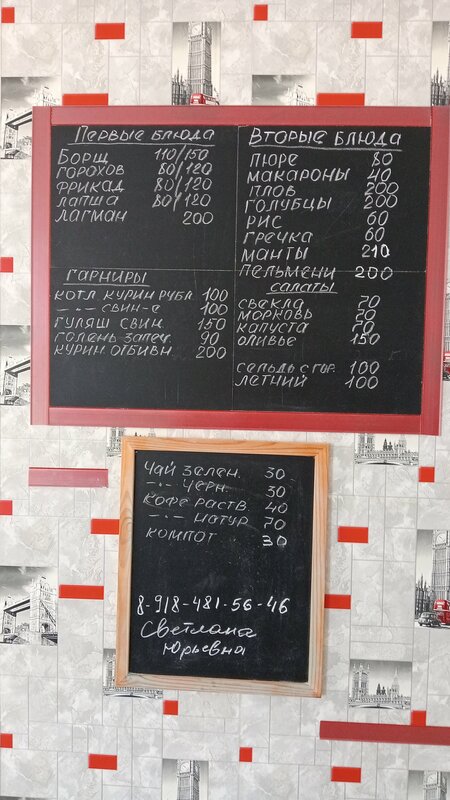 Первые блюда
Борщ 110/150
горохов 80/120
фрикад 80/120
лапша 80/120
лагман 200
Вторые блюда
пюре 80
макароны 40
плов 200
голубцы 200
рис 60
гречка 60
манты 210
пельмени 200
гарниры
котл курин рубл 100
-"- свин-е 100
гуляш свин. 150
голень запеч. 90
курин отбивн. 200
салаты
свекла 70
морковь 70
капуста 70
оливье 150
сельдь с гор. 100
летний 100
чай зелен. 30
-"- черн. 30
кофе раств. 40
-"- натур 70
компот 30
8-918-481-56-46
Светлана
Юрьевна